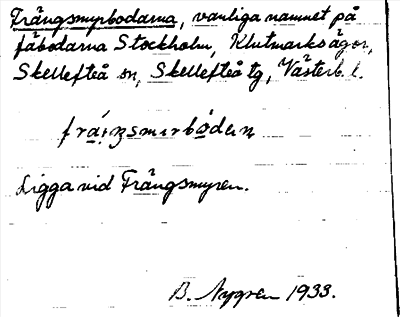 Trängsmyrbodarna, vanliga namnet på
fäbodarna Stockholm, Klutmarks ägor,
Skellefteå sn, Skellefteå tg, Västerb. l.
Ligga vid Trängsmyren.
B. Nygren 1933.